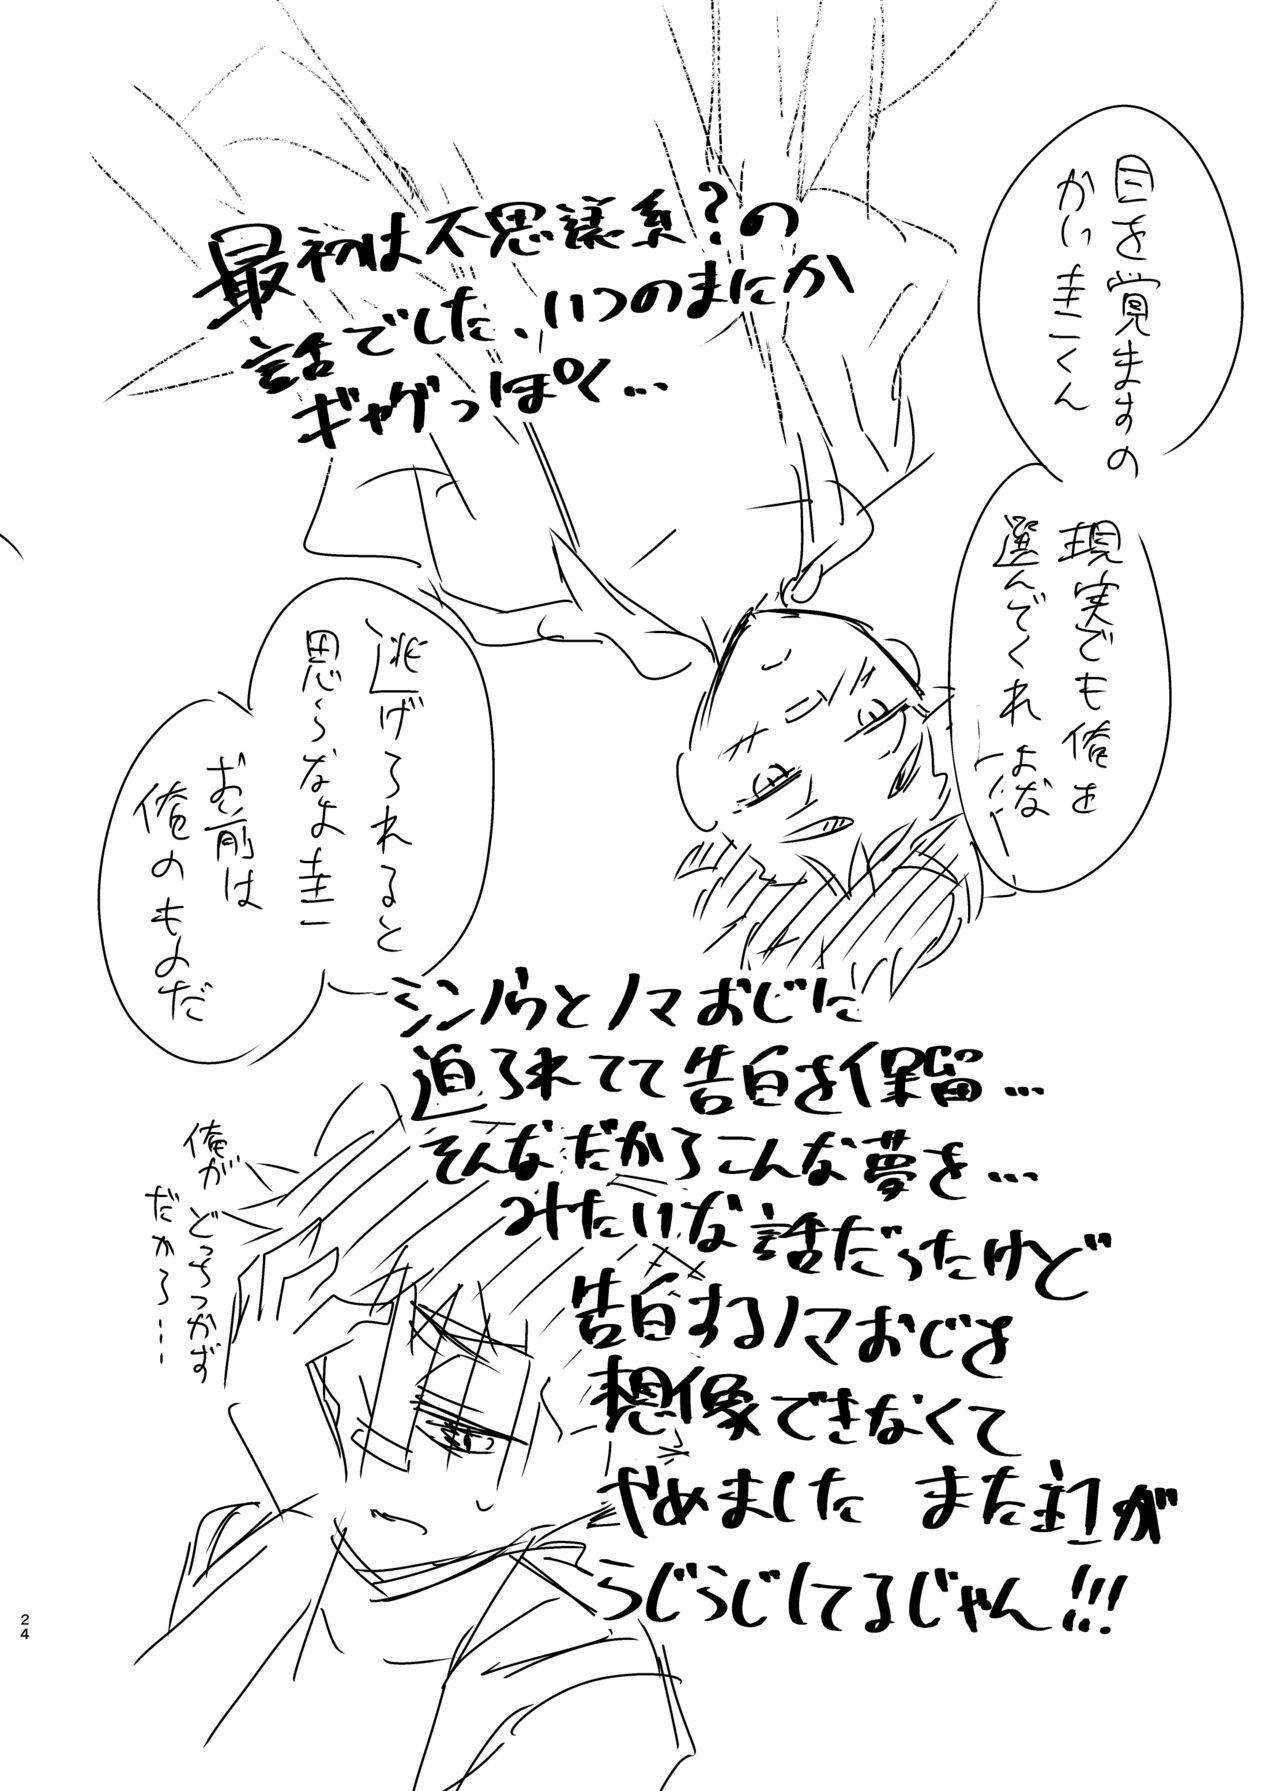 最初は不思議系?の
話でした、いつのまにか
ギャグっぽく…
目を覚ますの
かい圭一くん
現実でも俺を
選んでくれよな
逃げられると
思うなよ圭一
お前は
俺のものだ
シンノウとノマおじに
迫られてて告白を保留…
そんなだからこんな夢を…
みたいな話だったけど
告白するノマおじを
想像できなくて
やめました また圭1が
うじうじしてるじゃん!!!
俺が
どっちつかず
だから…
24